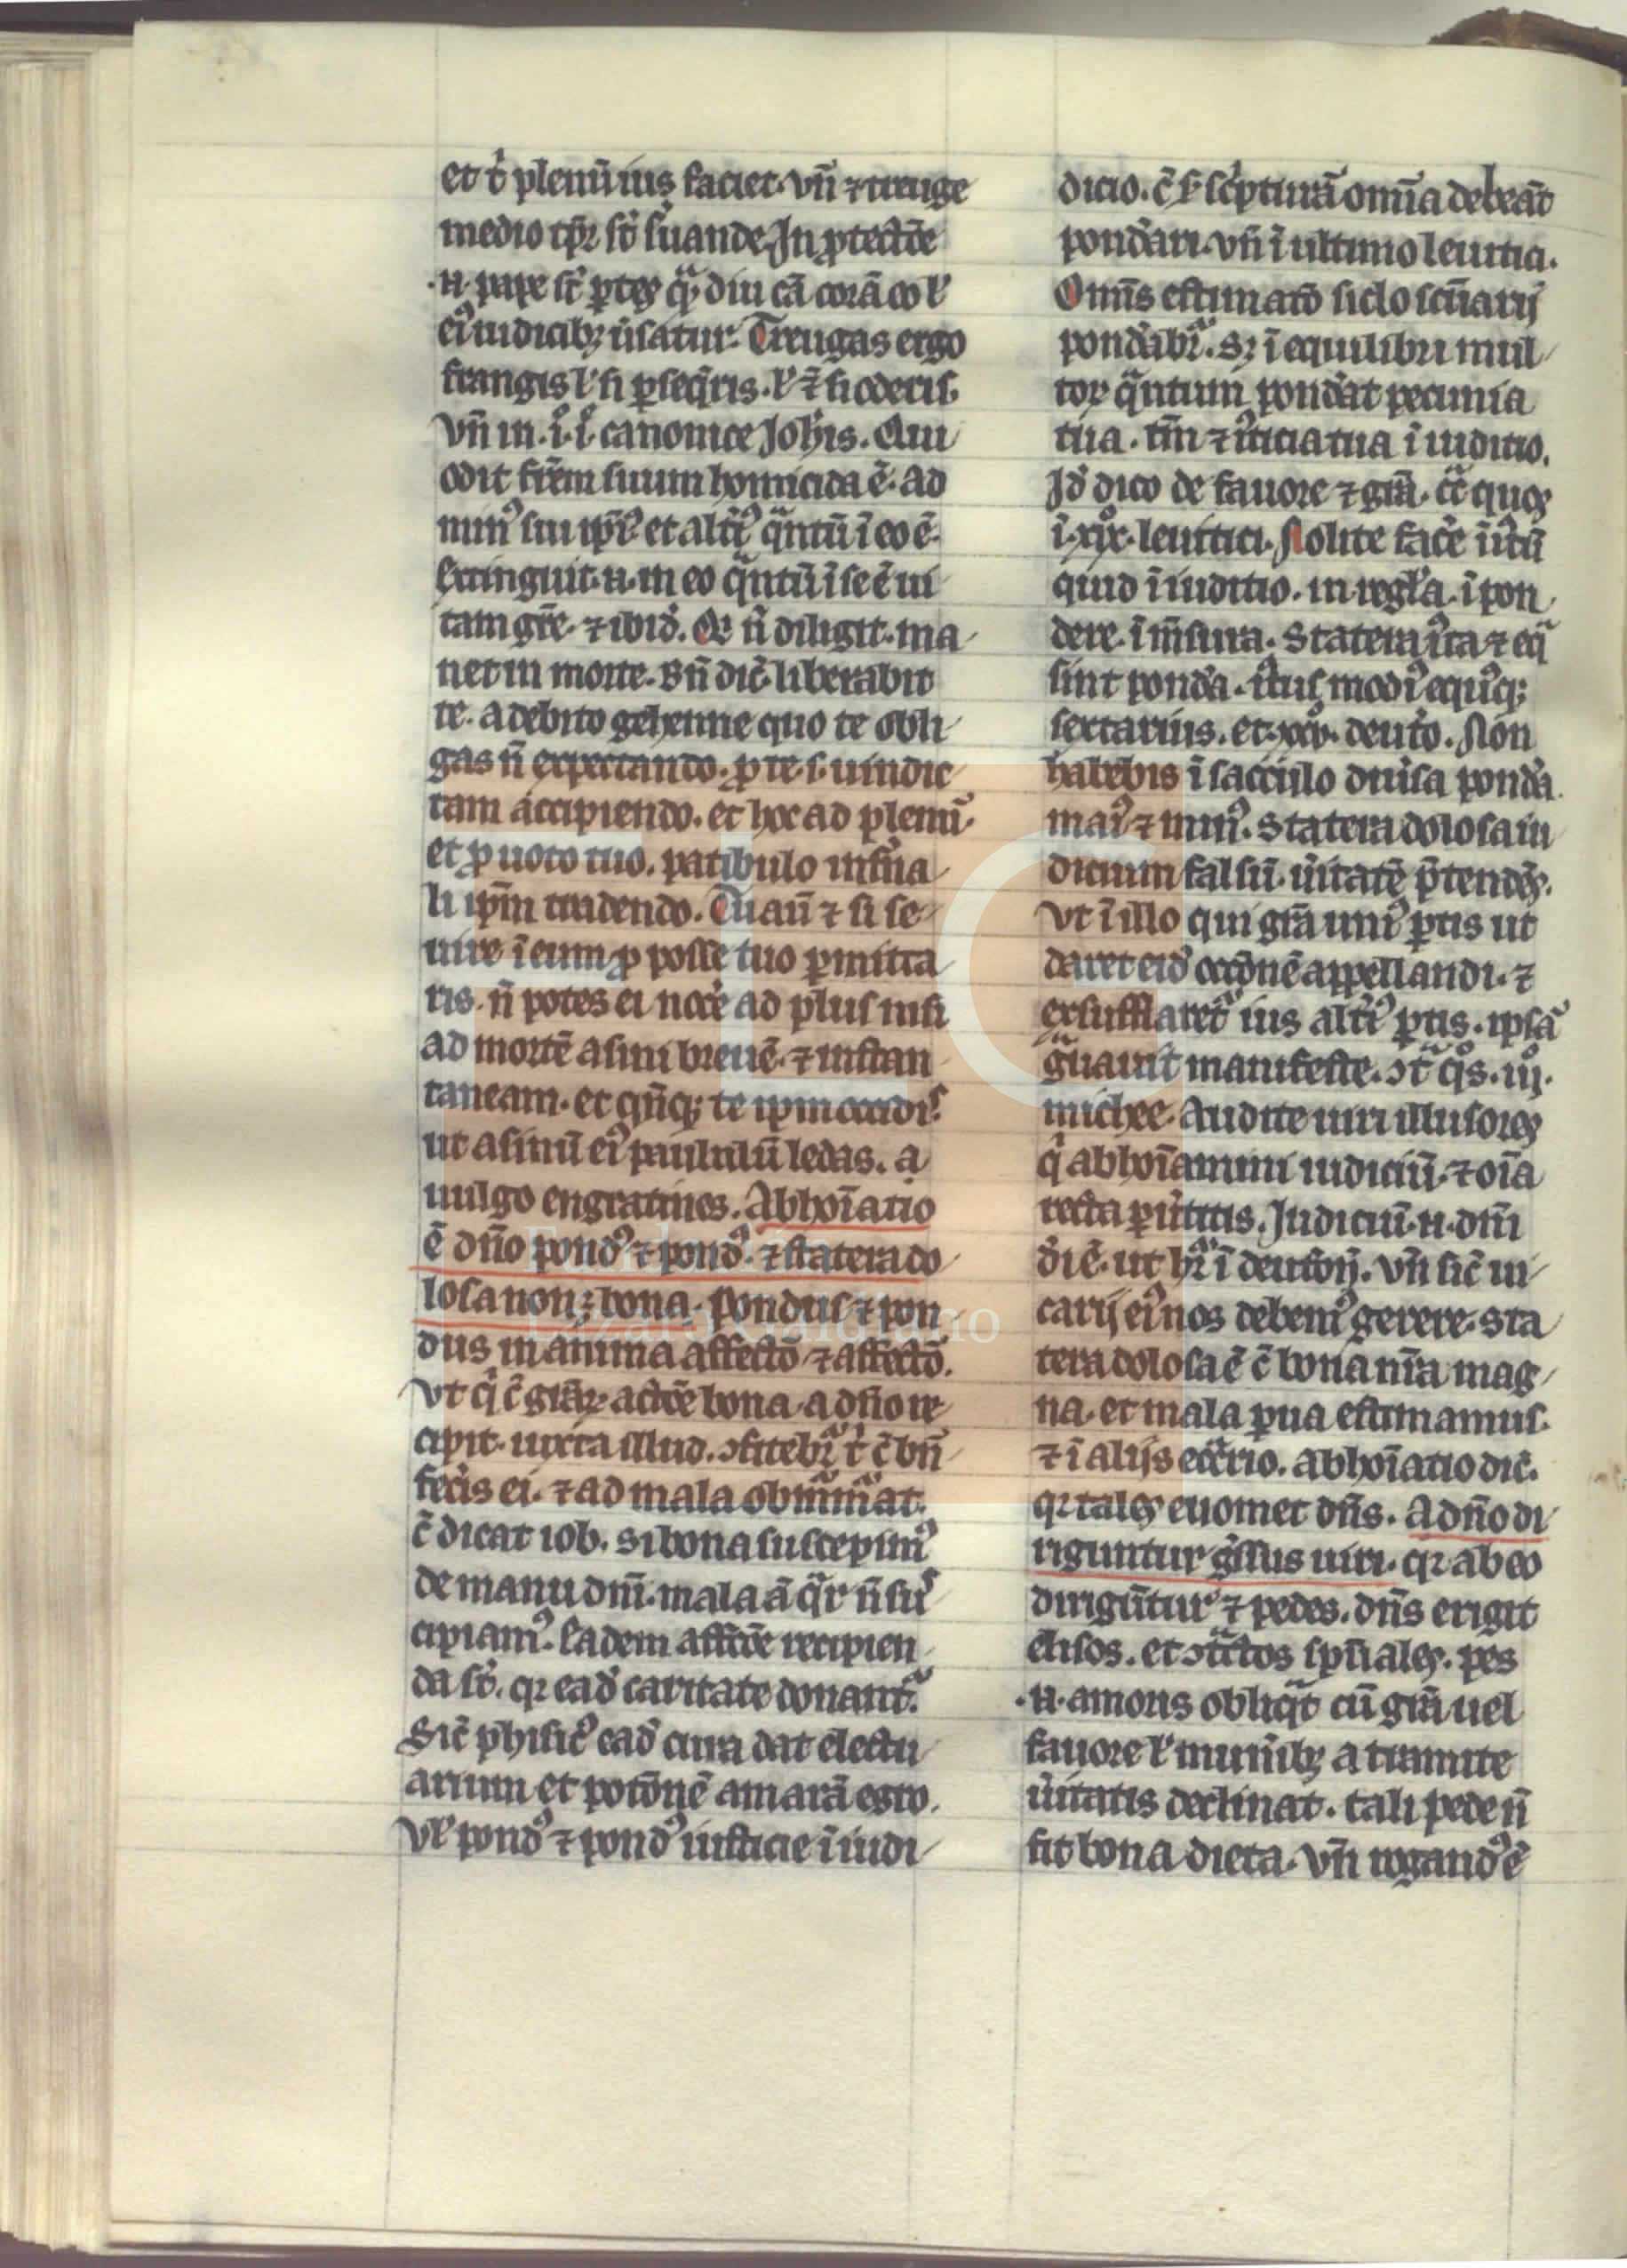 et t̾ plenũ ius faciet. vñ ⁊ treuge
medio tꝑe st̾ ẜuande. In ꝓtectõe
.n. pape st̾ ꝑtes qͣ diu cã corã eo ł
eiꝰ iudicibꝫ ũsatur. Treugas ergo
frangis ł si ꝑseq̃ris. ł ⁊̃ si oderis.
vñ in .i. i. canonice Joh̃is. Qui
odit fr̃em suum homicida ẽ. ad
minꝰ sui ip̃iꝰ et altiꝰ qͣntũ ĩ eo ẽ.
Extinguit .n. in eo qͣntũ ĩ se ẽ ui
tam gr̃e. ⁊ ibid̾. Qi ñ diligit. ma
net in morte. Bñ dic̃ liberabit
te. a debito gehenne quo te obli
gas ñ expectando. ꝓ te .s. uindic
tam accipiendo. et hoc ad plenũ.
et ꝓ uoto tuo. patibulo infña
li ip̃m tradendo. Tu aũ ⁊ si se
uire ĩ eum ꝓ posse tuo ꝑmitta
ris. ñ potes ei noc̾e ad plus nisi
ad mortẽ asini breuẽ. ⁊ instan
taneam. et qñqꝫ te ip̃m occidis
ut asinũ eiꝰ paululũ ledas. a
uulgo engratines. Abhoĩatio
ẽ dño pondꝰ ⁊ pondꝰ. ⁊ statera do
losa non ẽ bona. Pondus ⁊ pon
dus in anima affectõ ⁊ affectõ.
Vt q̇ c̃ gr̃aꝝ actõe bona a dño re
cipit. iuxta illud. ɔfitebr̃ t̾ c̃ bñ
fec̾is ei. ⁊ ad mala obm̃m̃at.
c̃ dicat iob. Si bona suscepimꝰ
de manu dñi. mala ã qͣr ñ sus
cipiamꝰ. Eadem affctõe recipien
da st̾. qꝛ ead̾ caritate donant̃.
Sic̃ phisicꝰ ead̾ cura dat electu
arium et potõnẽ amarã egro.
Vł pondꝰ ⁊ pondꝰ iusticie ĩ iudi
dicio. c̃ ẜ sc̾pturã omĩa debeãt
pond̾ari. vñ ĩ ultimo leuitici.
Omĩs estimatõ siclo sc̃uarij
pond̾abr̃. Sꝫ ĩ equilibri mul
toꝝ qͣntum pond̾at pecunia
tua. tm̃ ⁊ iusticia tua ĩ iuditio.
Jd̾ dico de fauore ⁊ gr̃a. cͣ quos
ĩ .xix. leuitici. Nolite fac̾e
quid ĩ iuditio. in regła. ĩ pon
dere. ĩ m̃sura. Statera iͥta ⁊ eqͣ
sint pond̾a. iͥtus modiꝰ equꝰqꝫ
sextarius. et .xxv. deut̾o. Non
habebis ĩ sacculo diu̾sa pond̾a.
maiꝰ ⁊ minꝰ. Statera dolosa iu
dicium falsũ. u̾itatẽ p̃tendẽs.
Vt ĩ illo qui gr̃a uniꝰ ꝑtis ut
daret eid̾ occõnẽ appellandi. ⁊
exsufflaret̃ ius alt̾iꝰ ꝑtis. ipsã
gͣuauit manifeste. ɔtͣ qͦs .iij.
michee. Audite uiri illusores
q̇ abhoĩamini iudiciũ. ⁊ oĩa
recta ꝑu̾titis. Judiciũ .n. dñi
dic̃. ut hr̃ ĩ deut̾oñ. vñ sic̃ ui
carij eiꝰ nos debemꝰ gerere. Sta
tera dolosa ẽ c̃ bona nr̃a mag
na. et mala ꝑua estimamus.
⁊ ĩ alijs ecͣrio. Abhoĩatio dic̃.
qꝛ tales euomet dñs. A dño di
riguntur g̾ssus uiri. qꝛ ab eo
dirigũtur ⁊ pedes. dñs erigit
elisos. et ɔtͣctos sp̃uales. pes
.n. amoris obliqͣt̾ cũ gr̃a uel
fauore ł mun̾ibꝫ a tramite
u̾itatis declinat. tali pede ñ
fit bona dieta. vñ rogandꝰ ẽ